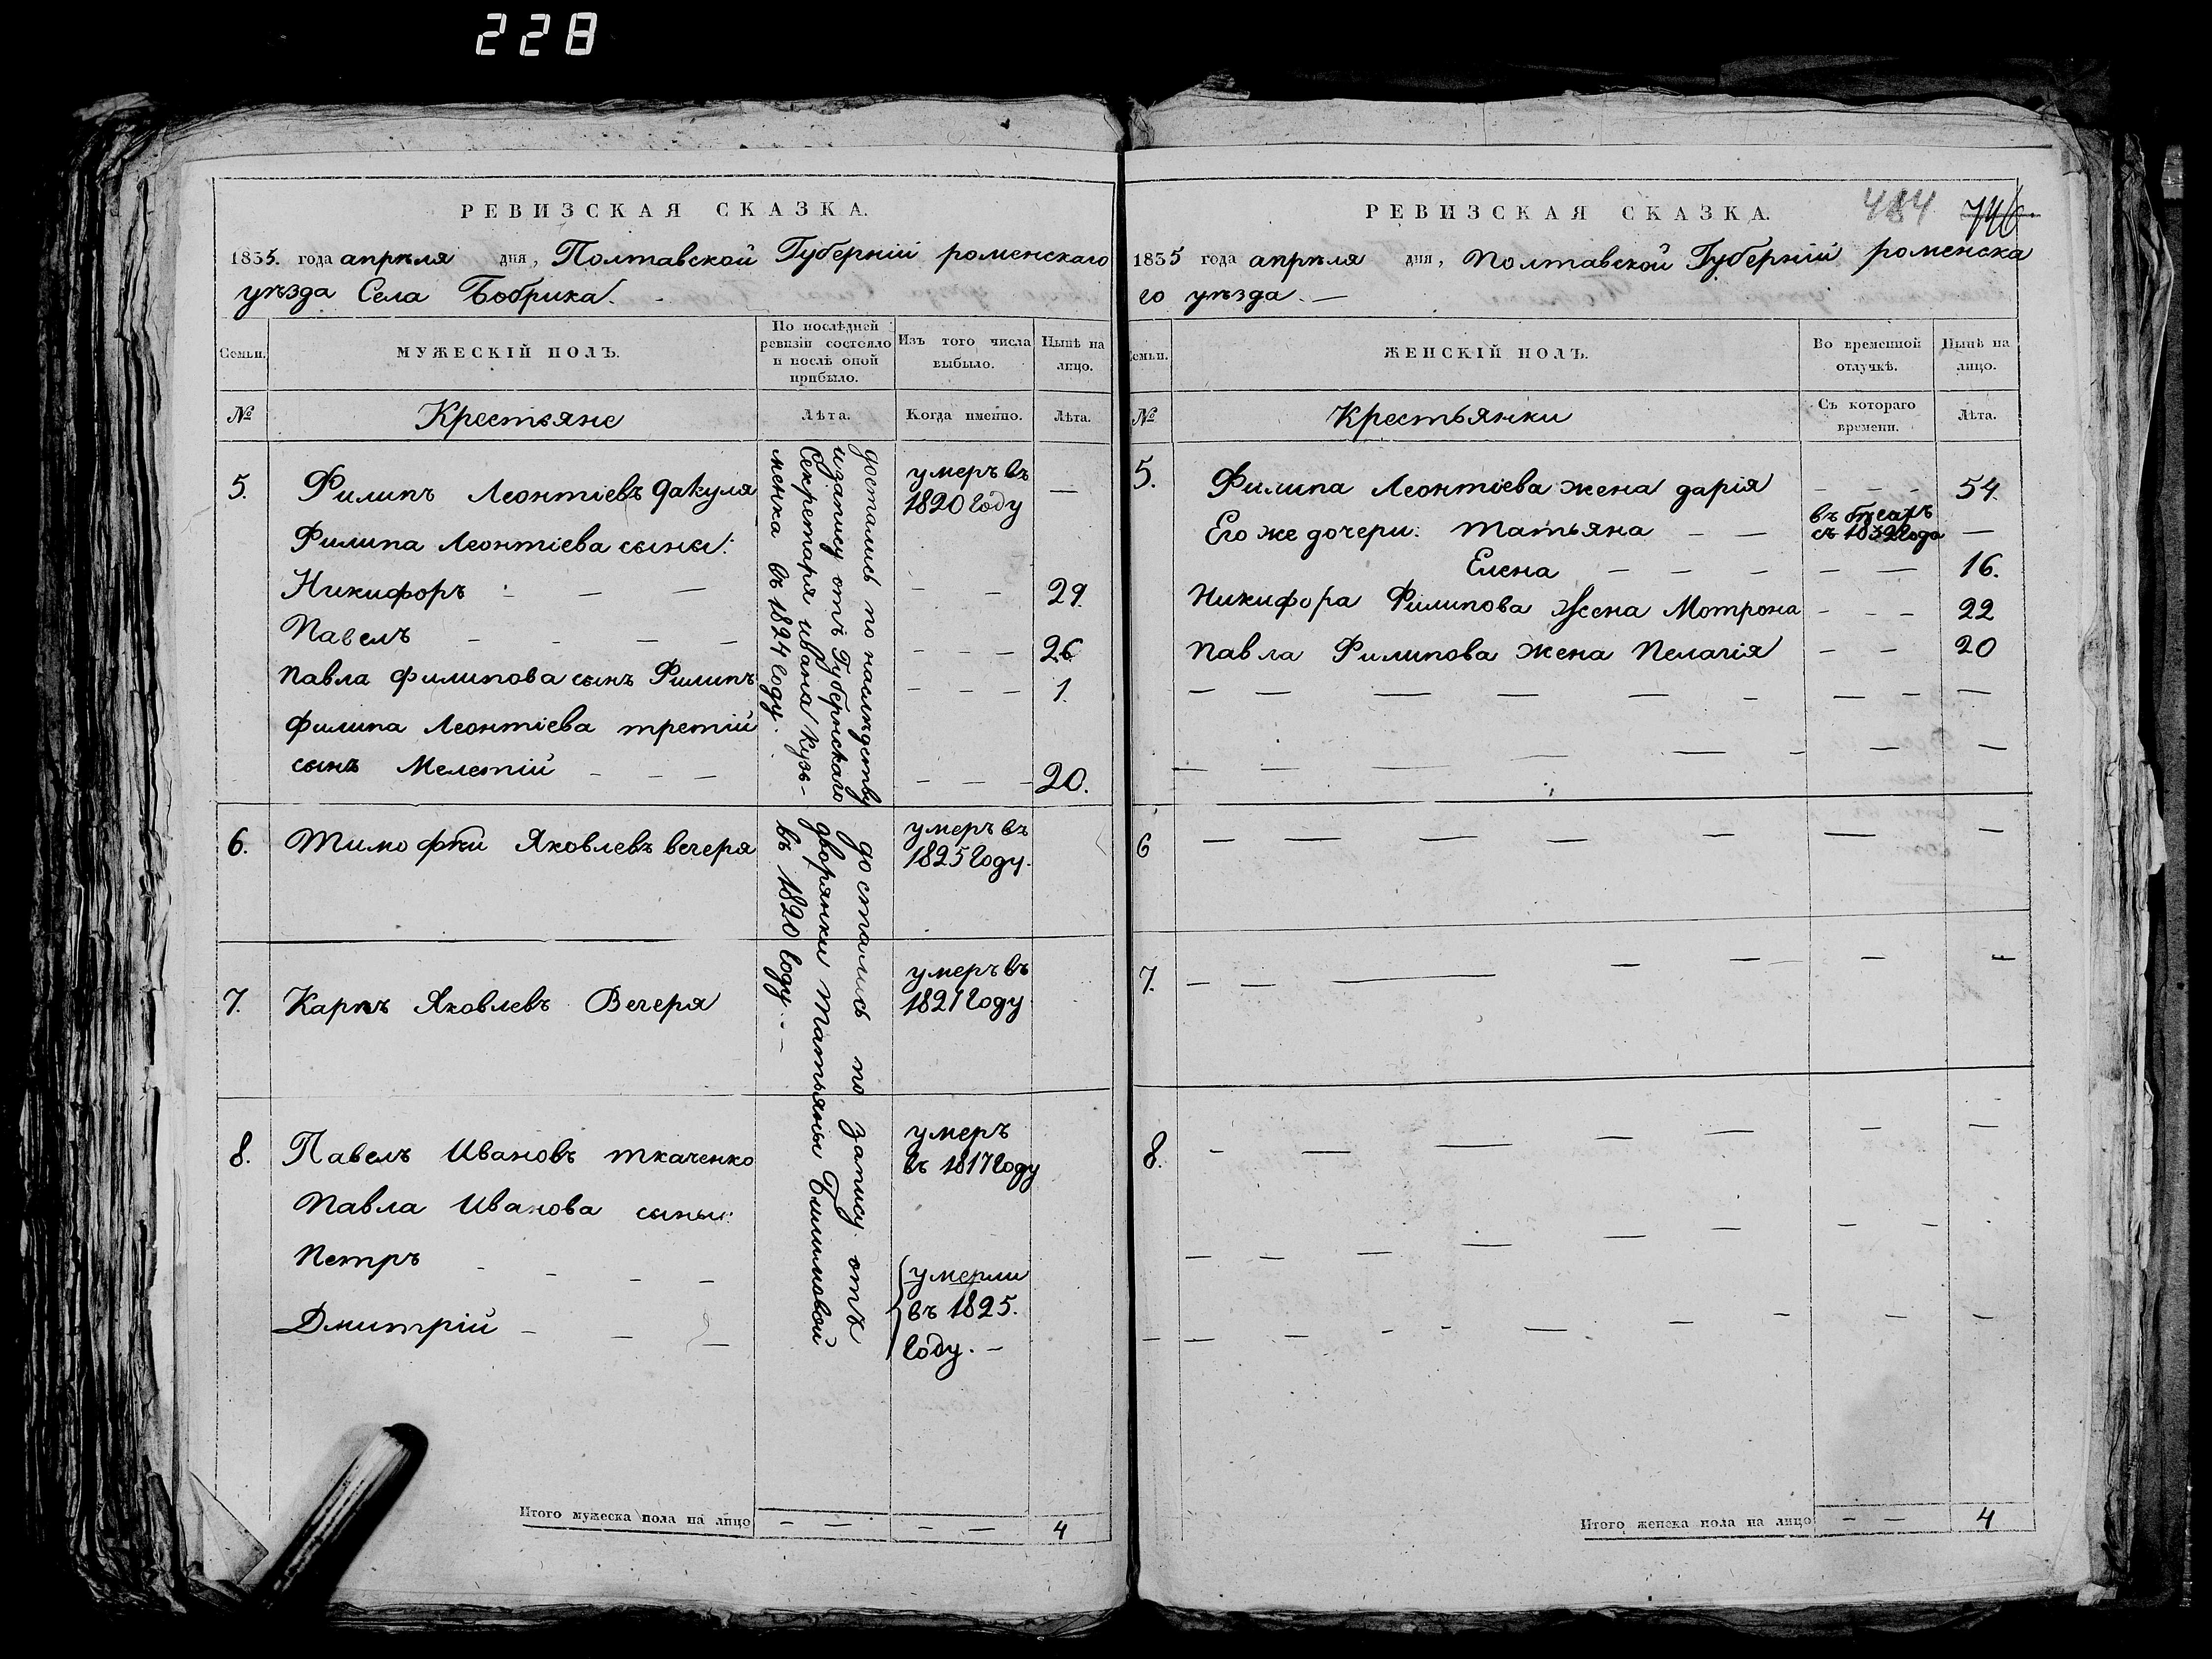 228
РЕВИЗСКАЯ СКАЗКА.
1835. года апрѣля дня, Полтавской Губерніи роменскаго
уѣзда Села Бобрика. -
Семьи.
МУЖЕСКІЙ ПОЛЪ.
По послѣдней
ревизіи состояло
и послѣ оной
прибыло.
Изъ того числа
выбыло.
Нынѣ на
лицо.
№
Крестьяне
Лѣта.
Когда именно.
Лѣта.
5. Филипъ Леонтіевъ Факуля
умеръ въ
1820 году —
Филипа Леонтіева сыны:
Никифоръ - — — - - 29.
Павелъ - - — — - - - 26
Павла Филипова сынъ Филипъ - - - 1.
Филипа Леонтіева третій
сынъ Мелетій - - - - - - 20.
достались по наслѣдству
изапису отъ Губернскаго
Секретаря ивана Кузь-
менка въ 1824 году.
6. Тимофѣй Яковлевъ вечеря
умеръ въ
1825 году.
7. Карпъ Яковлевъ Вечеря
умеръ въ
1821 году
8. Павелъ Ивановъ ткаченко
умеръ
въ 1817 году
Павла Иванова сыны:
Петръ - - - -
Дмитрій - - —
умерли
въ 1825.
году. -
достались по запису отъ
дворянки Татьяны
въ 1820 году. - -
Итого мужеска пола на лицо - — - — 4
484 746.
РЕВИЗСКАЯ СКАЗКА.
1835 года апрѣля дня, Полтавской Губерніи роменска
го уѣзда. —
Семьи.
ЖЕНСКІЙ ПОЛЪ.
Во временной
отлучкѣ.
Нынѣ на
лицо.
№
Крестьянки
Съ котораго
времени.
Лѣта.
5. Филипа Леонтіева жена дарія - - - 54.
Его же дочери: Татьяна - —
въ бѣгахъ
съ 1832 года —
Елена — — — - — 16.
Никифора Филипова Жена Мотрона - - - 22
Павла Филипова жена Пелагія - - 20
6
7.
8.
Итого женска пола на лицо - — 4